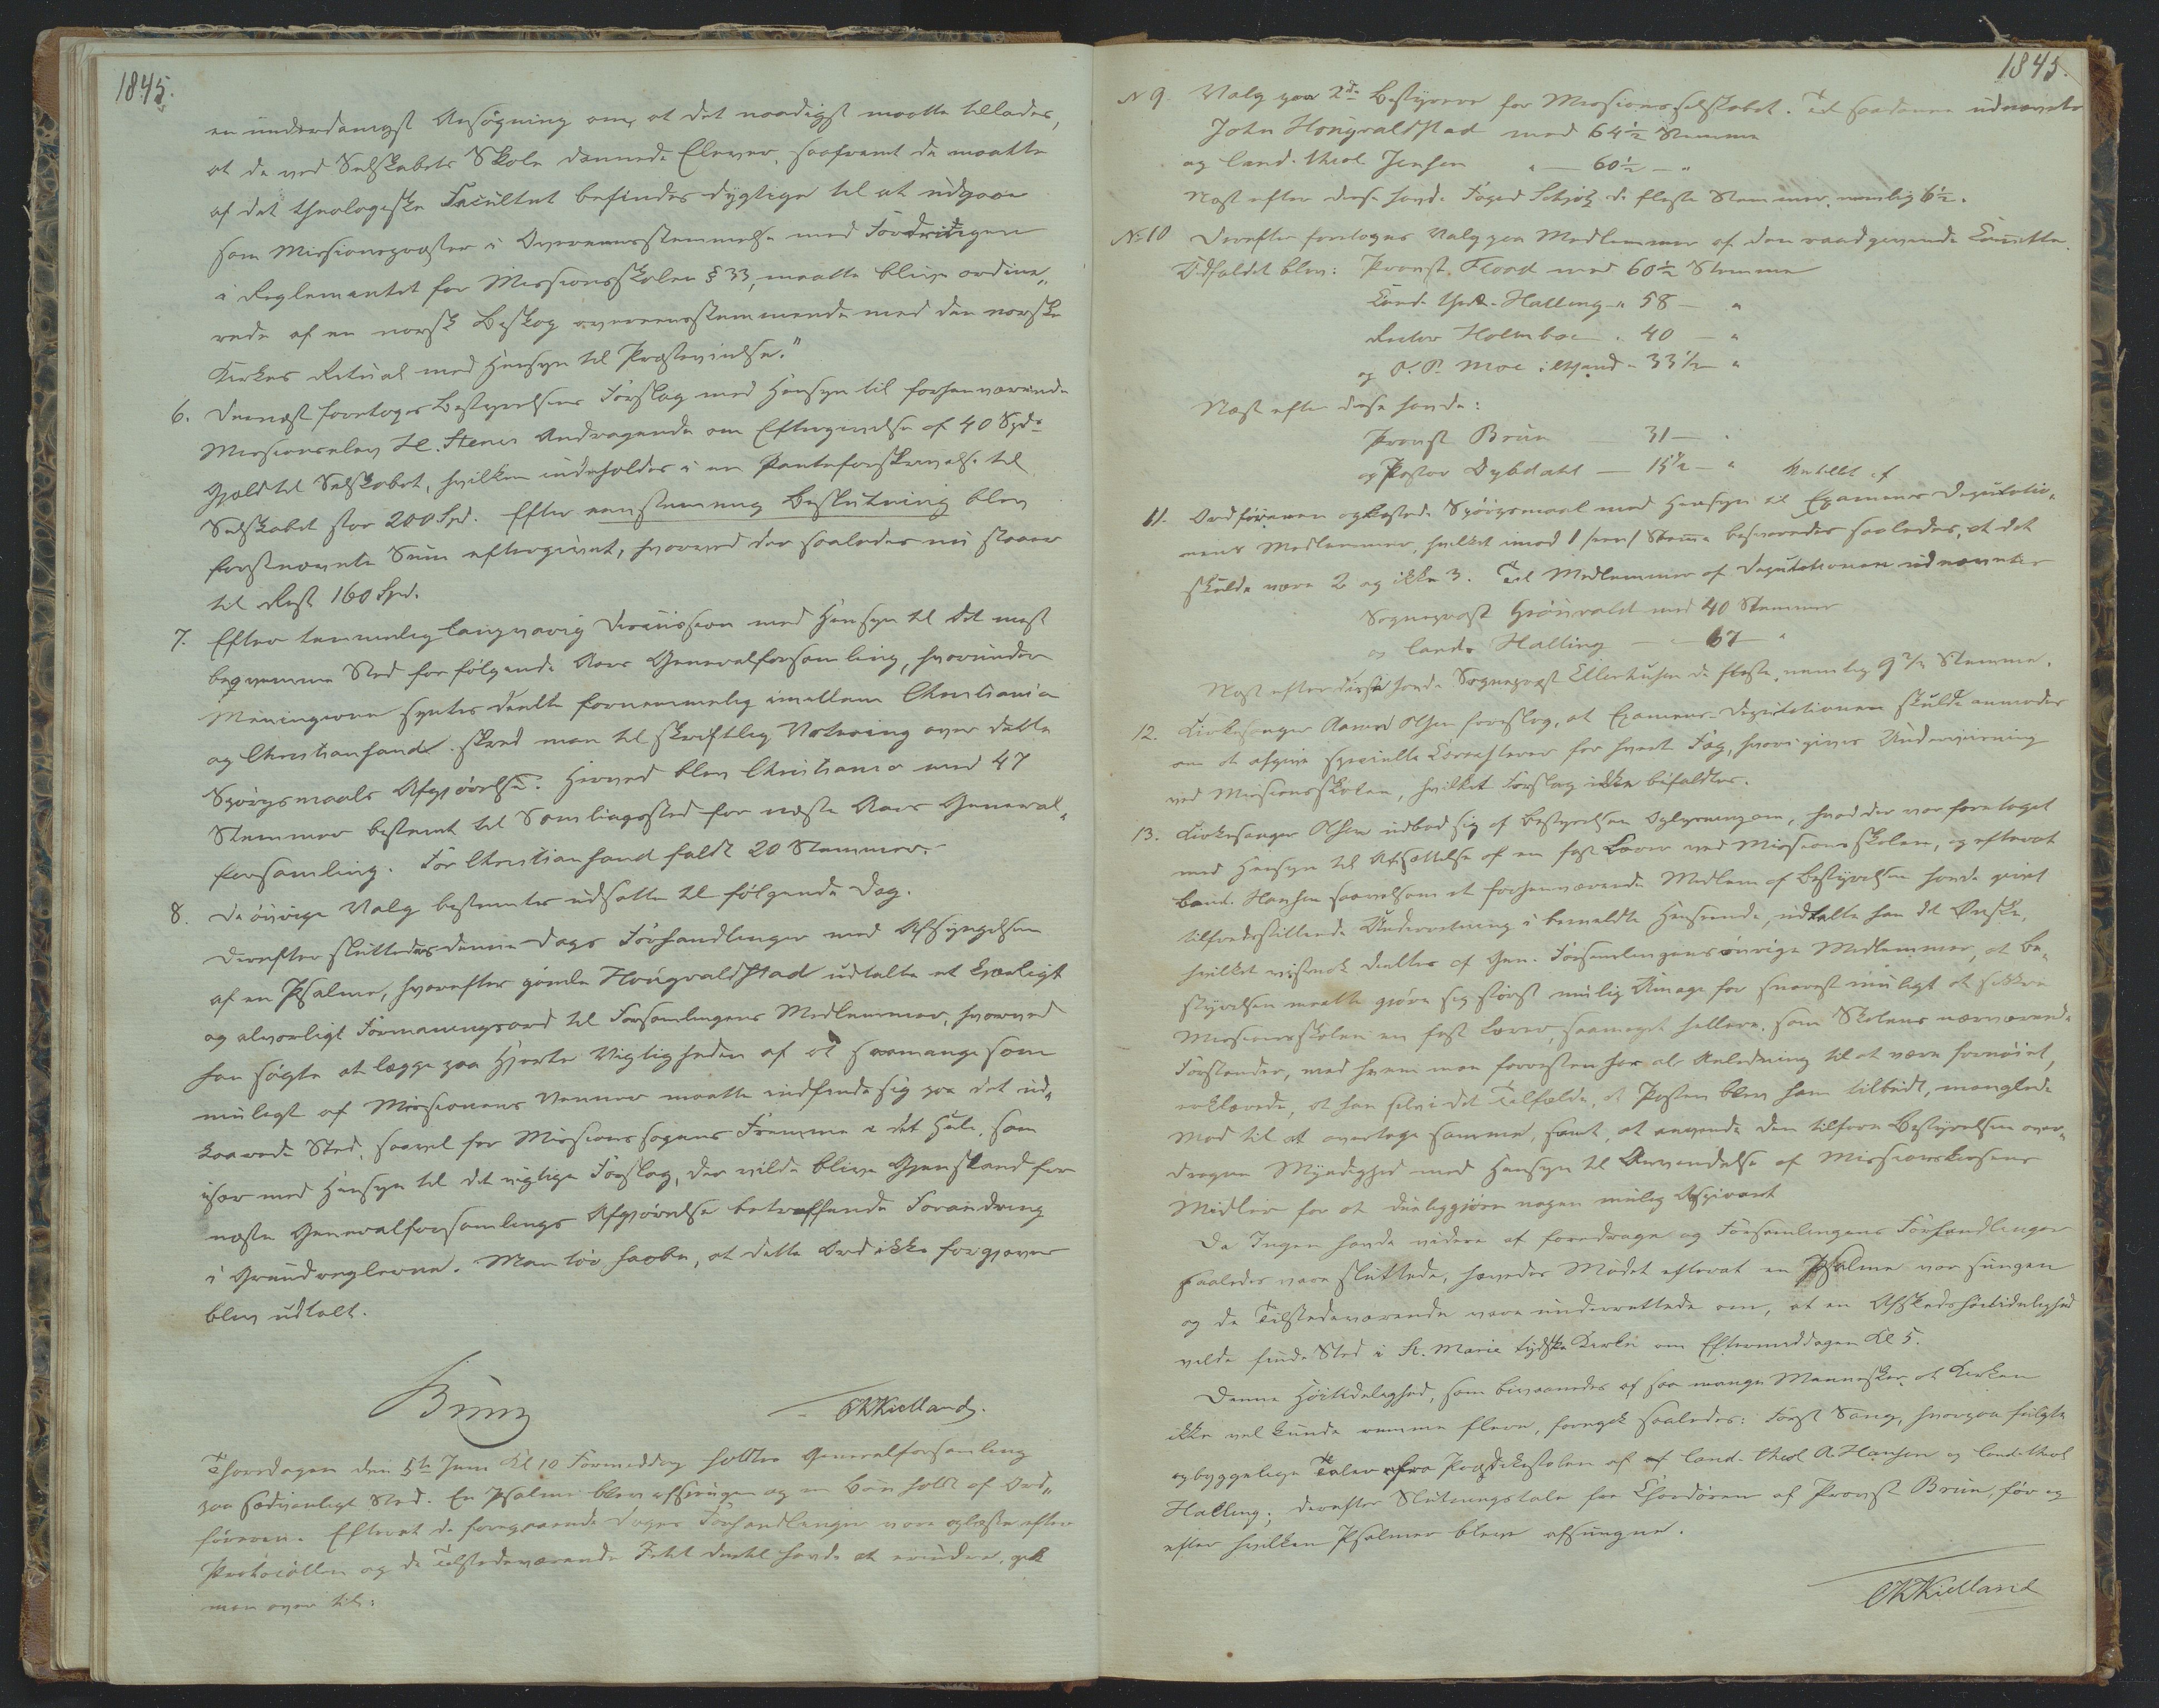 1845.
en underdanigst Ansøgning om, at det naadigst maatte tillades,
at de ved Selskabets Skole dannede Elever, saafremt de maatte
af det theologiske Facultet befindes dygtige til at udgaae
som Missionspræster i Overeensstemmelse med Fordringen
i Reglementet for Missionsskolen § 33, maatte blive ordine„
rede af en norsk Biskop overeensstemmende med den norske
Kirkes Ritual med Hensyn til Præstevielse."
6. Dernæst foretoges Bestyrelsens Forslag med Hensyn til forhenværende
Missionselev H. Steners Andragende om Eftergivelse af 40 Spd
Gjæld til Selskabet, hvilken indeholdes i en Panteforskrivelse til
Selskabet stor 200 Spd. Efter eenstemmig Beslutning blev
førstnævnte Sum eftergivet, hvorved der saaledes nu staaer
til Rest 160 Spd.
7. Efter temmelig langvarig Discussion med Hensyn til det mest
beqvemme Sted for følgende Aars Generalforsamling, hvorunder
Meningerne syntes deelte fornemmelig imellem Christiania
og Christiansand skred man til skriftlig Votering over dette
Spørgsmaals Afgjørelse. Herved blev Christiania med 47
Stemmer bestemt til Samlingssted for næste Aars General„
forsamling. For Christiansand faldt 20 Stemmer.
8. De øvrige Valg bestemtes udsatte til følgende Dag.
Derefter sluttedes denne Dags Forhandlinger med Afsyngelsen
af en Psalme, hvorefter gamle Haugvaldstad udtalte et kjærligt
og alvorligt Formaningsord til Forsamlingens Medlemmer, hvorved
han søgte at lægge paa Hjerte Vigtigheden af at saamange som
muligt af Missionens Venner maatte indfinde sig paa det ud„
kaarede Sted, saavel for Missionssagens Fremme i det Hele, som
især med Hensyn til det vigtige Forslag, der vilde blive Gjenstand for
næste Generalforsamlings Afgjørelse betræffende Forandring
i Grundreglerne. Man tør haabe, at dette Ord ikke forgjæves
blev udtalt.
Bruun
Kielland.
Thorsdagen den 5te Juni Kl 10 Formiddag holdtes Generalforsamling
paa sædvanligt Sted. En Psalme blev afsungen og en Bøn holdt af Ord„
føreren. Efterat de foregaaende Dages Forhandlinger vare oplæste efter
Protocollen og de Tilstedeværende Intet dertil havde at erindre, gik
man over til:
1845.
N 9. Valg paa 2de Bestyrere for Missionsselskabet. Til saadanne udnævntes
John Haugvaldstad med 64½ Stemme
og Cand. theol. Jensen " — 60½ — "
Næst efter disse havde Foged Schiøtz de fleste Stemmer, nemlig 6½.
No 10 Derefter foretoges Valg paa Medlemmer af den raadgivende Comitte.
Udfaldet blev: Provst Flood med 60½ Stemme
Cand. theol. Halling " 58 — "
Rector Holmboe " 40 — "
og P. P. Moe i 33½ "
Næst efter disse havde:
Provst Bruun — 31 — "
og Pastor Dybdahl — 15½ — "
11. Ordføreren opkastede Spørgsmaal med Hensyn til Antallet af Examens Deputatio„
nens Medlemmer, hvilket imod 1 /een/ Stemme besvaredes saaledes, at det
skulde være 2 og ikke 3. Til Medlemmer af Deputationen udnævntes
Sognepræst Grønvold med 40 Stemmer
og Cand. Halling — " — 67 — "
Næst efter disse havde Sognepræst Ellerhusen de fleste, nemlig 9½ Stemme.
12. Kirkesanger Olsen foreslog, at Examens-Deputationen skulde anmodes
om at afgive specielle Charakterer for hvert Fag, hvori gives Underviisning
ved Missionsskolen, hvilket Forslag ikke bifaldtes.
13. Kirkesanger Olsen udbad sig af Bestyrelsen Oplysning om, hvad der var foretaget
med Hensyn til Ansættelse af en fast Lærer ved Missionsskolen, og efterat
Cand. Hansen saavelsom et forhenværende Medlem af Bestyrelsen havde givet
tilfredsstillende Underretning i bemeldte Henseende, udtalte han det Ønske,
hvilket vistnok deeltes af Gen. Forsamlingens øvrige Medlemmer, at Be„
styrelsen maatte gjøre sig størst mulig Umage for snarest muligt at sikkre
Missionsskolen en fast Lærer, saameget hellere, som Skolens nærværende
Forstander, med hvem man forresten har al Anledning til at være fornøiet,
erklærede, at han selv i det Tilfælde, at Posten blev ham tilbudt, manglede
Mod til at overtage samme, samt, at anvende den tilforn Bestyrelsen over„
dragne Myndighed med Hensyn til Anvendelse af Missionskassens
Midler for at dueliggjøre nogen mulig Aspirant
Da Ingen havde videre at foredrage og Forsamlingens Forhandlinger
saaledes vare sluttede, hævedes Mødet efterat en Psalme var sungen
og de Tilstedeværende vare underrettede om, at en Afskedshøitidelighed
vilde finde Sted i St. Marie tydske Kirke om Eftermiddagen Kl 5.
Denne Høitidelighed, som bivaanedes af saa mange Mennesker, at Kirken
ikke vel kunde rumme flere, foregik saaledes: Først Sang, hvorpaa fulgte
opbyggelige Taler fra Prædikestolen af Cand. theol A. Hansen og Cand. theol
Halling; derefter Slutningstale fra Chordøren af Provst Bruun, før og
efter hvilken Psalmer bleve afsungne.
Kielland